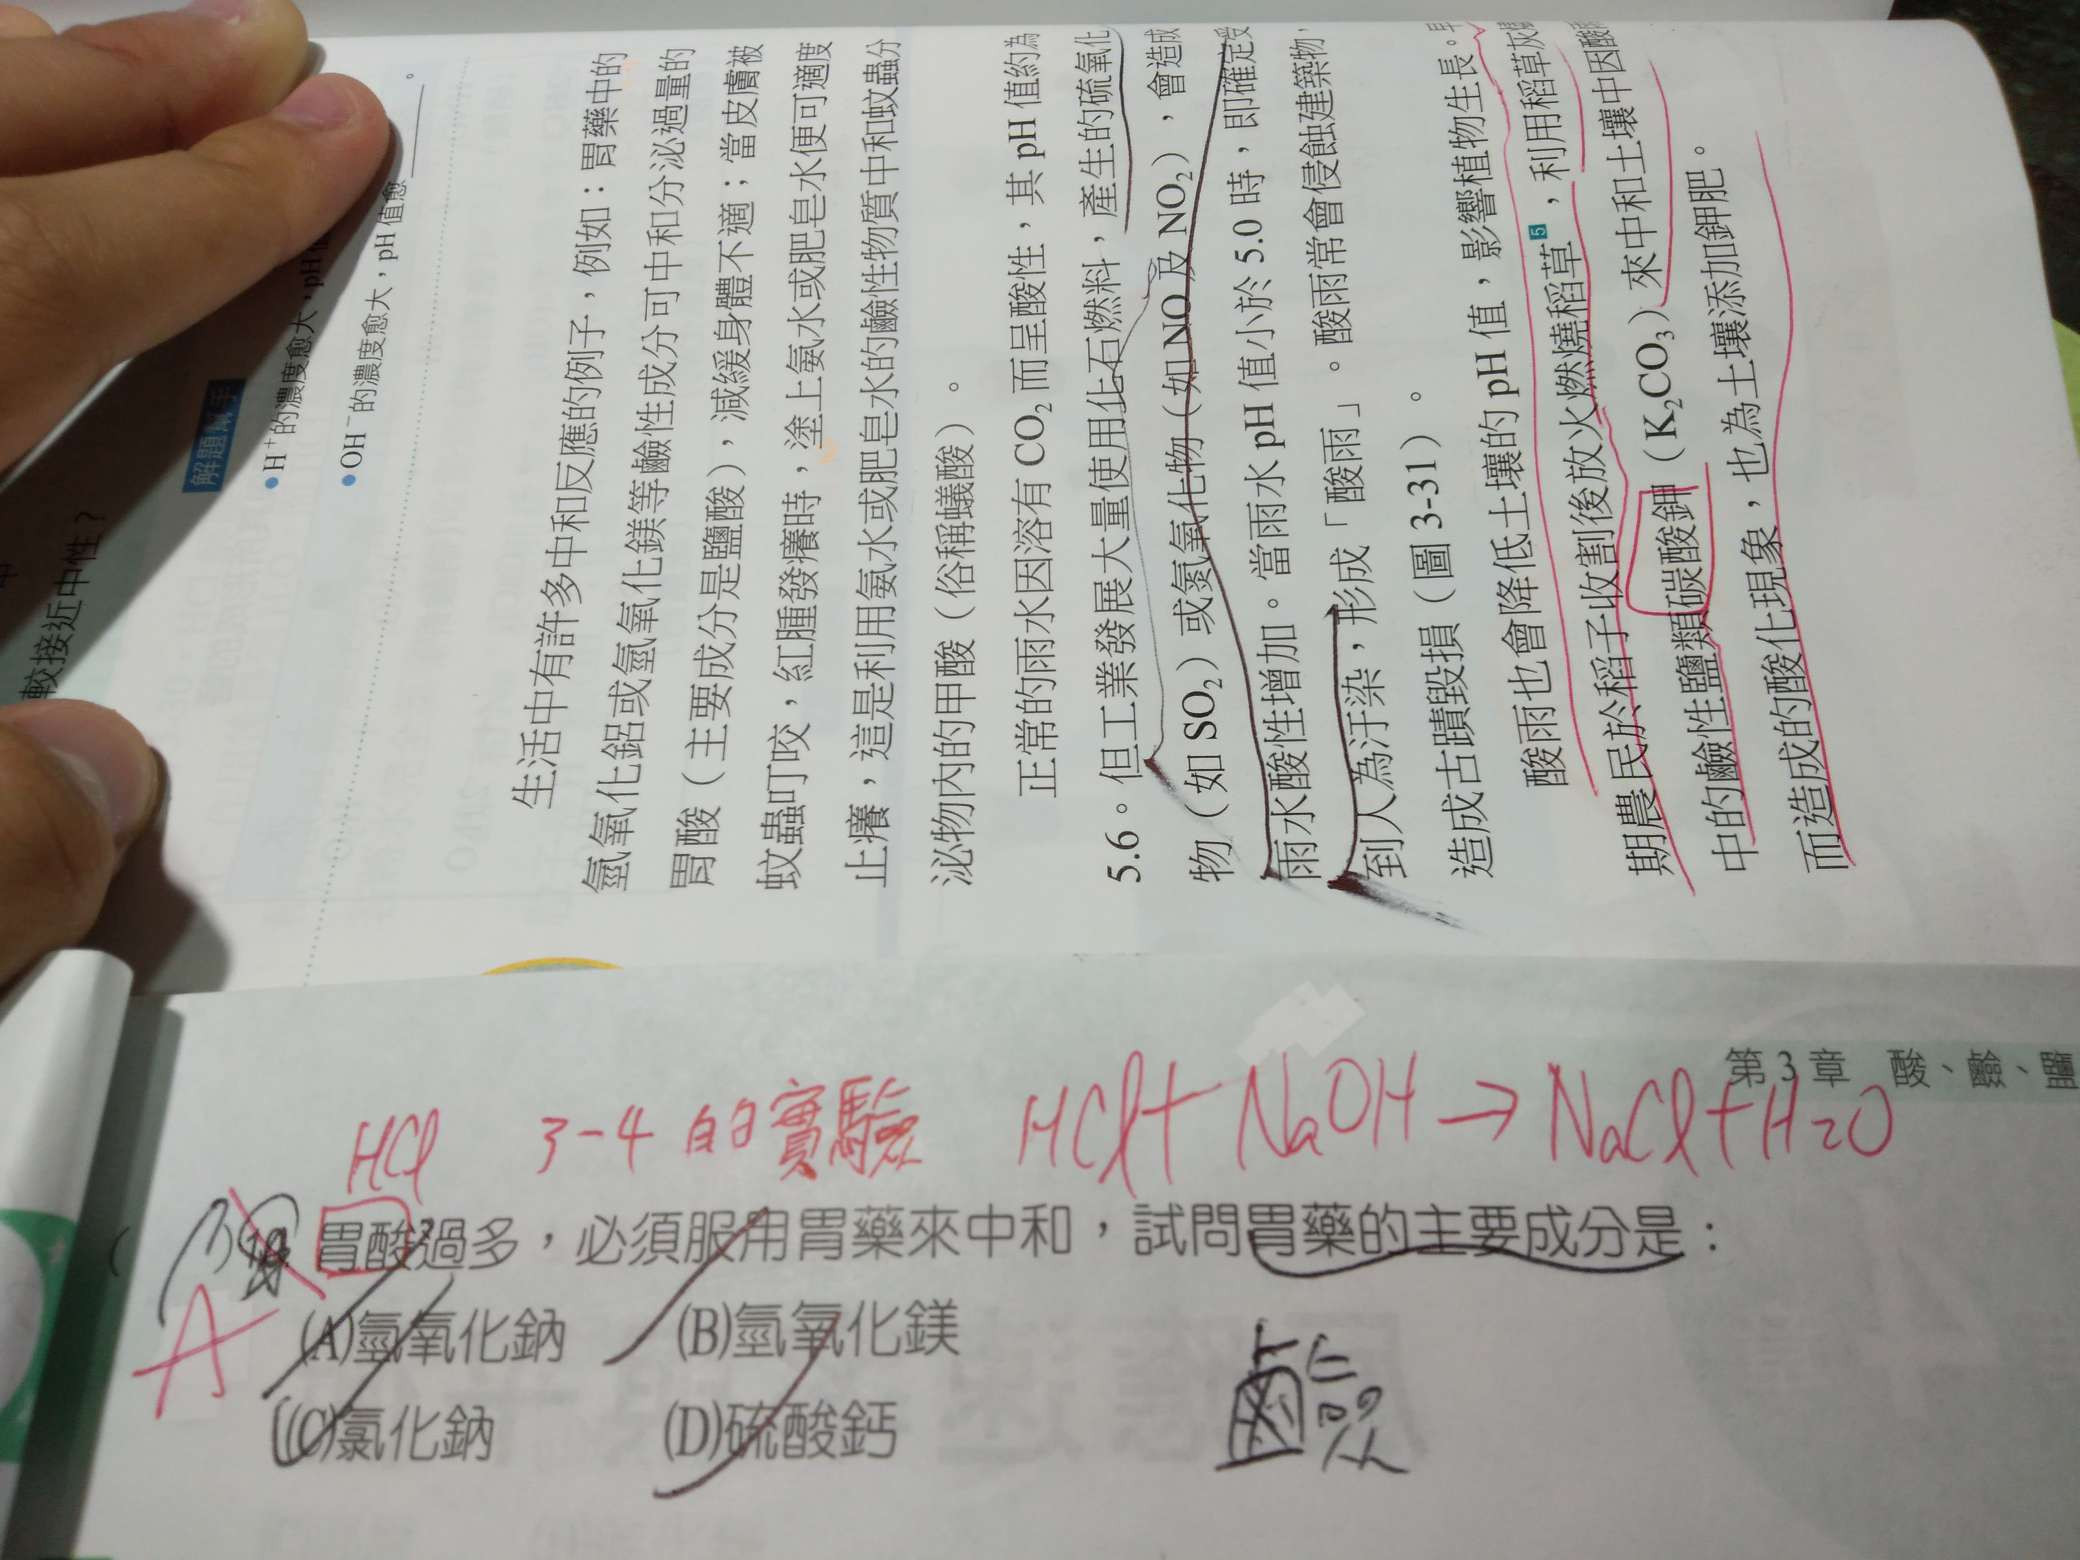 較接近中性？
解題幫手
•H⁺的濃度愈大，pH值
•OH⁻的濃度愈大，pH值愈＿＿＿。
生活中有許多中和反應的例子，例如：胃藥中的
氫氧化鋁或氫氧化鎂等鹼性成分可中和分泌過量的
胃酸（主要成分是鹽酸），減緩身體不適；當皮膚被
蚊蟲叮咬，紅腫發癢時，塗上氨水或肥皂水便可適度
止癢，這是利用氨水或肥皂水的鹼性物質中和蚊蟲分
泌物內的甲酸（俗稱蟻酸）。
正常的雨水因溶有CO₂而呈酸性，其pH值約為
5.6。但工業發展大量使用化石燃料，產生的硫氧化
物（如SO₂）或氮氧化物（如NO及NO₂），會造成
雨水酸性增加。當雨水pH值小於5.0時，即確定受
到人為汙染，形成「酸雨」。酸雨常會侵蝕建築物，
造成古蹟毀損（圖3-31）。
酸雨也會降低土壤的pH值，影響植物生長。早
期農民於稻子收割後放火燃燒稻草5，利用稻草灰燼
中的鹼性鹽類碳酸鉀（K₂CO₃）來中和土壤中因酸雨
而造成的酸化現象，也為土壤添加鉀肥。
第3章 酸、鹼、鹽
HCl 3-4的實驗 HCl+NaOH→NaCl+H₂O
胃酸過多，必須服用胃藥來中和，試問胃藥的主要成分是：
A
(A)氫氧化鈉 (B)氫氧化鎂
(C)氯化鈉 (D)硫酸鈣
鹼